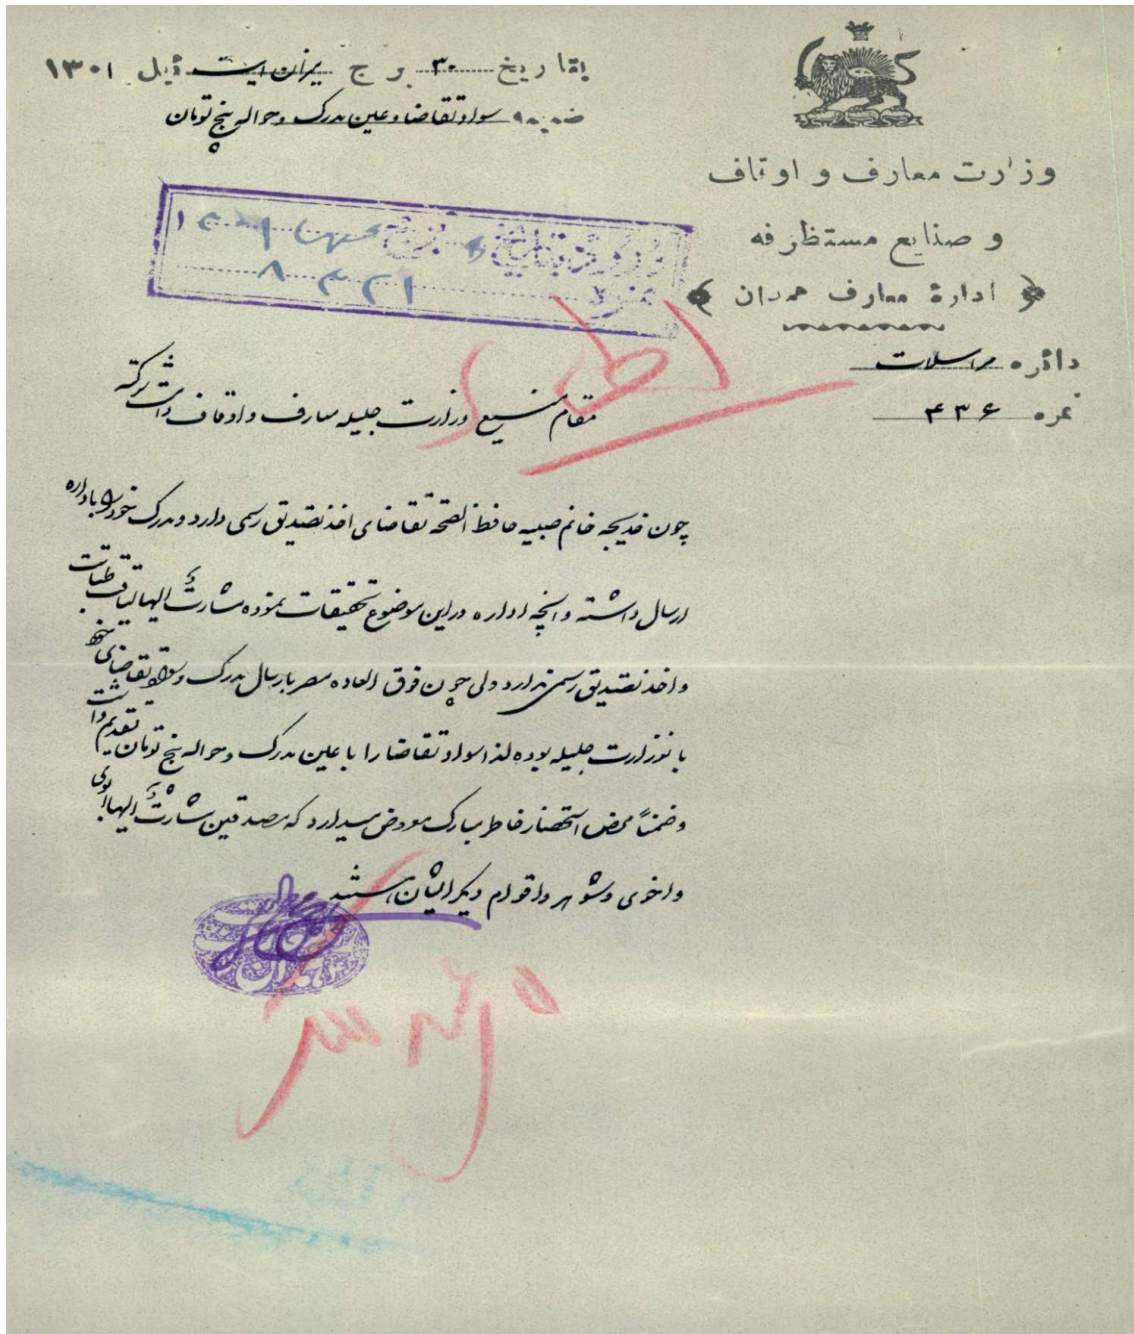 بتاریخ ۳۰ برج میزان ایت ئیل ۱۳۰۱
ضمیمه سواد تقاضا و عین مدرک و حواله پنج تومان
وزارت معارف و اوقاف
و صنایع مستظرفه
ادارهٔ معارف همدان
دائره مراسلات
نمره ۴۳۶
ورود بتاریخ برج ۱۳۰۱
نمره
مقام منیع وزارت جلیله معارف و اوقاف دامت شوکته
چون خدیجه خانم صبیه حافظ الصحه تقاضای اخذ تصدیق رسمی دارد و مدرک خود را باداره
ارسال داشته و آنچه اداره در این موضوع تحقیقات نموده مشارٌ الیها لیاقت طبابت
و اخذ تصدیق رسمی ندارد ولی چون فوق العاده مصر بارسال مدرک و سواد تقاضای خود
بوزارت جلیله بوده لذا سواد تقاضا را با عین مدرک و حواله پنج تومان تقدیم داشت
و ضمناً محض استحضار خاطر مبارک معروض میدارد که مصدقین مشارٌ الیها ابوی
و اخوی و شوهر و اقوام دیگر ایشان هستند